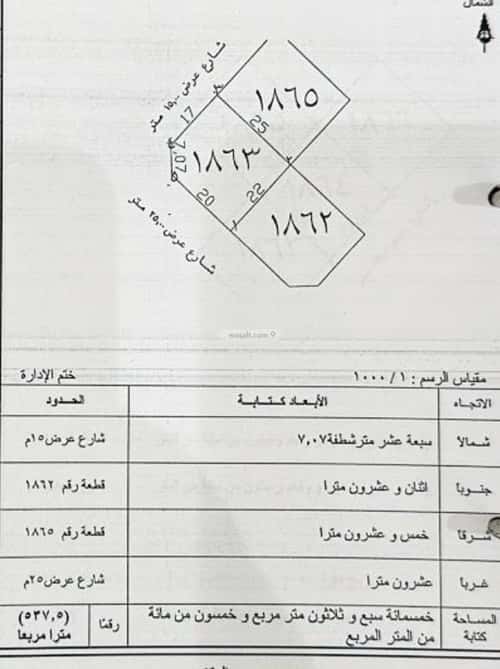 الشمال
شارع عرض ١٥,٠٠ متر
١٨٦٥
17
25
7,07
١٨٦٣
20
22
١٨٦٢
شارع عرض ٢٥,٠٠ متر
wasalt.com
مقياس الرسم : ١ / ١٠٠٠ ختم الإدارة
الاتجاه الأبعاد كتابة الحدود
شمالا سبعة عشر مترشطفة٧,٠٧ شارع عرض١٥م
جنوبا اثنان و عشرون مترا قطعة رقم ١٨٦٢
شرقا خمس و عشرون مترا قطعة رقم ١٨٦٥
غربا عشرون مترا شارع عرض٢٥م
المساحة كتابة خمسمائة سبع و ثلاثون متر مربع و خمسون من مائة من المتر المربع رقمًا (٥٣٧,٥) مترا مربعا